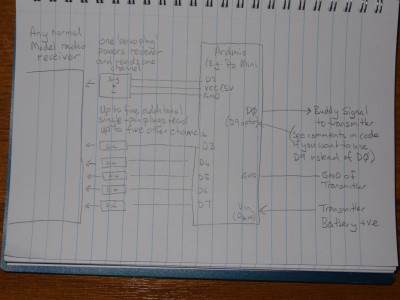 Any normal
Model radio
receiver
one servo plug
powers receiver
and reads one
channel
sig
+
-
Arduino
Eg: Pro Mini
D2
VCC/5V
GND
Up to five additional
single-pin plugs read
up to five other channels
D3
D4
D5
D6
D7
D0
(D9 
GND
Vin
Buddy Signal
to transmitter
(see comments in code
if you want to use
D9 instead of D0)
GND of
Transmitter
Transmitter
Battery +ve